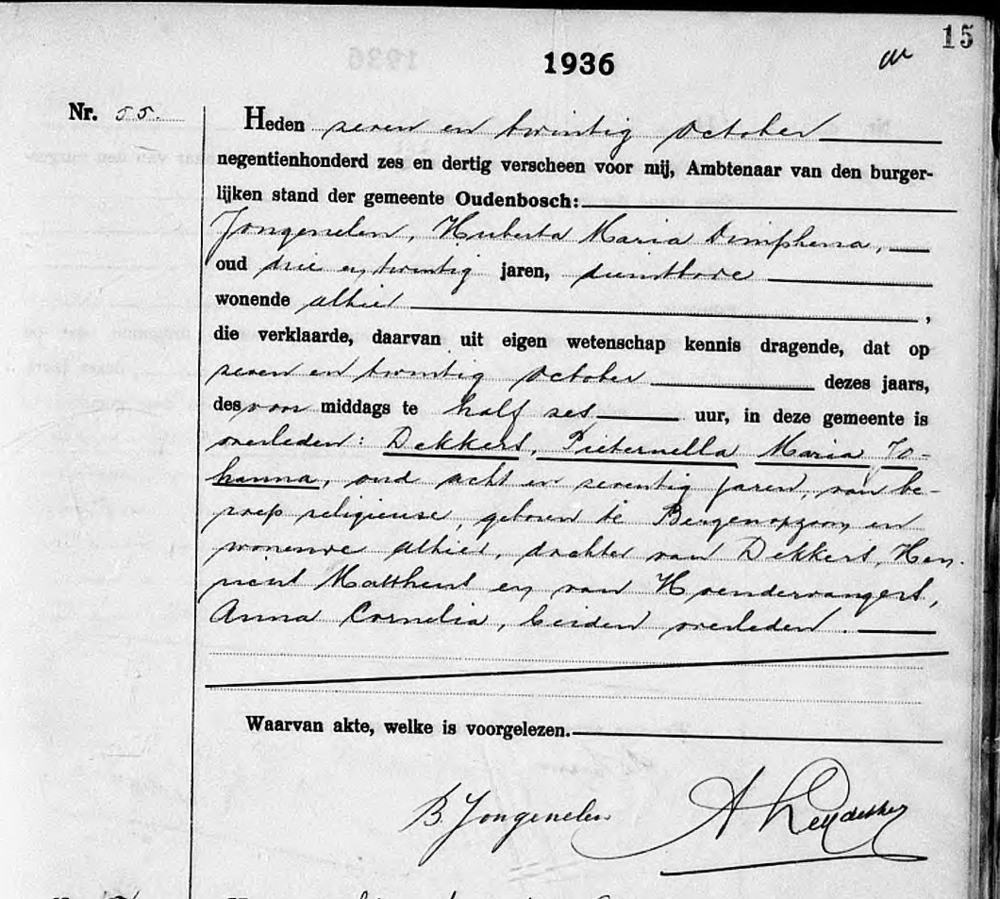 15
1936
Nr. 55.
Heden zeven en twintig October
negentienhonderd zes en dertig verscheen voor mij, Ambtenaar van den burger-
lijken stand der gemeente Oudenbosch:
Jongenelen, Huberta Maria Dimphena,
oud drie en twintig jaren, dienstbode
wonende alhier,
die verklaarde, daarvan uit eigen wetenschap kennis dragende, dat op
zeven en twintig October dezes jaars,
des voor middags te half zes uur, in deze gemeente is
overleden: Dekkers, Pieternella Maria Jo-
hanna, oud acht en zeventig jaren, van be-
roep religieuse, geboren te Bergen op Zoom en
wonende alhier, dochter van Dekkers, Hen-
ricus Mattheus en van Hoendervangers,
Anna Cornelia, beiden overleden.
Waarvan akte, welke is voorgelezen.
B Jongenelen